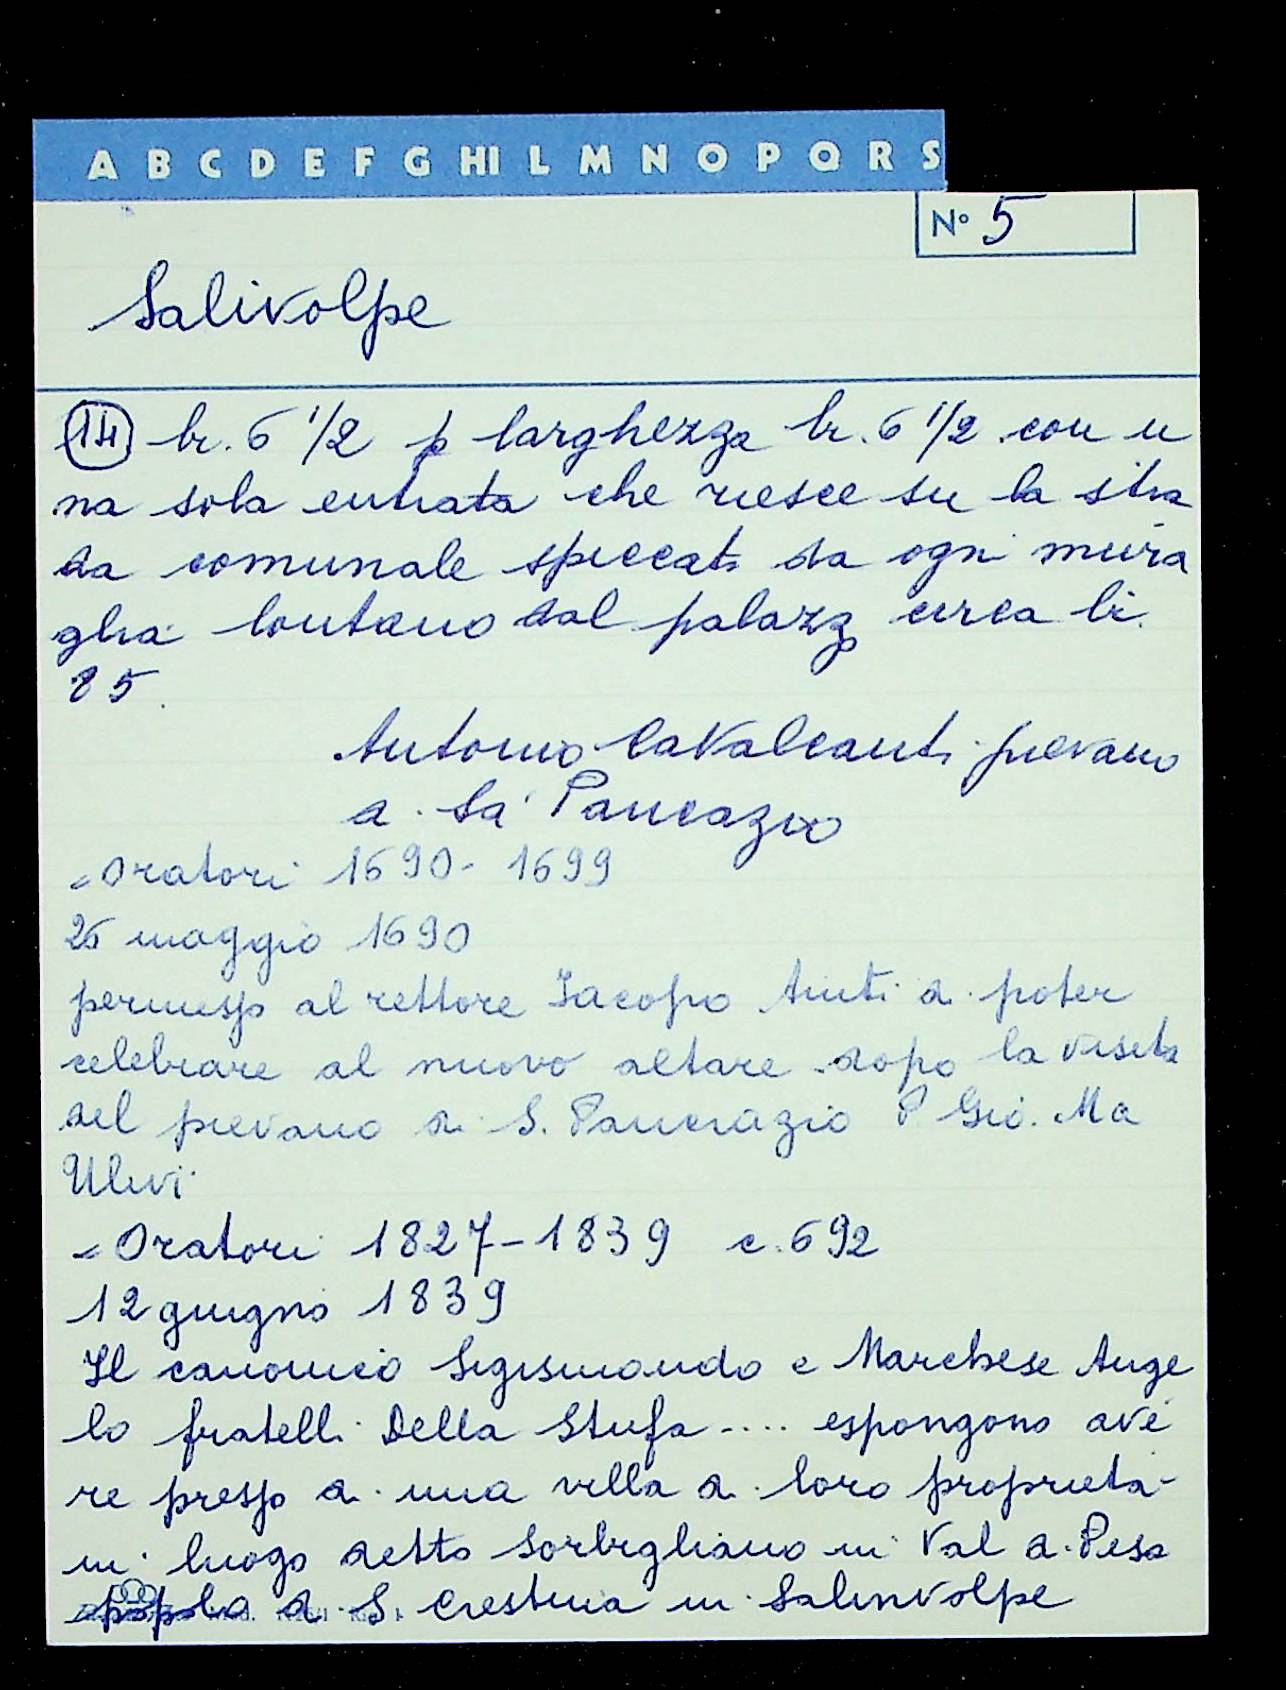 A B C D E F G HI L M N O P Q R S
N° 5
Salivolpe
(14) br. 6 1/2 p larghezza br. 6 1/2 con u
na sola entrata che riesce su la stra
da comunale spiccati da ogni mura
glia lontano dal palazzo circa br.
25.
Antonio Cavalcanti pievano
a Sa' Pancazio
= Oratori 1690-1699
26 maggio 1690
permesso al rettore Iacopo di poter
celebrare al nuovo altare dopo la visita
del pievano di S. Pancrazio P. Gio. Ma
Ulivi
= Oratori 1827-1839 c. 692
12 giugno 1839
Il canonico Sigismondo e Marchese Ange
lo fratelli Della Stufa .... espongono ave
re presso di una villa di loro proprietà
in luogo detto Sorbigliano in Val di Pesa
popolo di S. Cristina in Salinvolpe